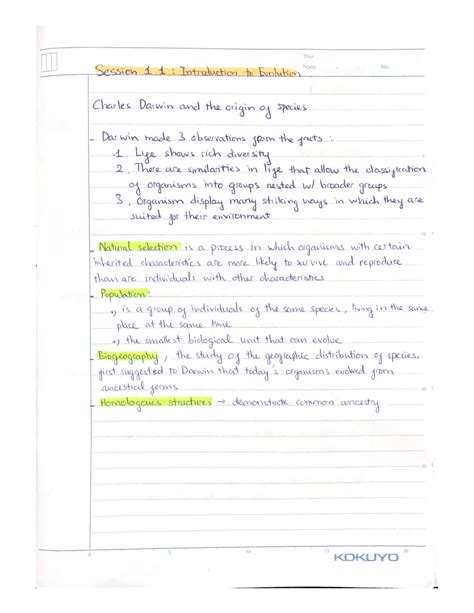 Title
No
Session 1.1: Introduction to Evolution
Charles Darwin and the origin of species
- Darwin made 3 observations from the facts:
1. Life shows rich diversity
2. There are similarities in life that allow the classification
of organisms into groups nested w/ broader groups
3. Organism display many striking ways in which they are
suited for their environment
- Natural selection is a process in which organisms with certain
inherited characteristics are more likely to survive and reproduce
than are individuals with other characteristics
- Population:
↳ is a group of individuals of the same species, living in the same
place at the same time
↳ the smallest biological unit that can evolve
- Biogeography, the study of the geographic distribution of species,
first suggested to Darwin that today's organisms evolved from
ancestical forms
- Homologences structures → demonstrate common ancestry
KOKUYO